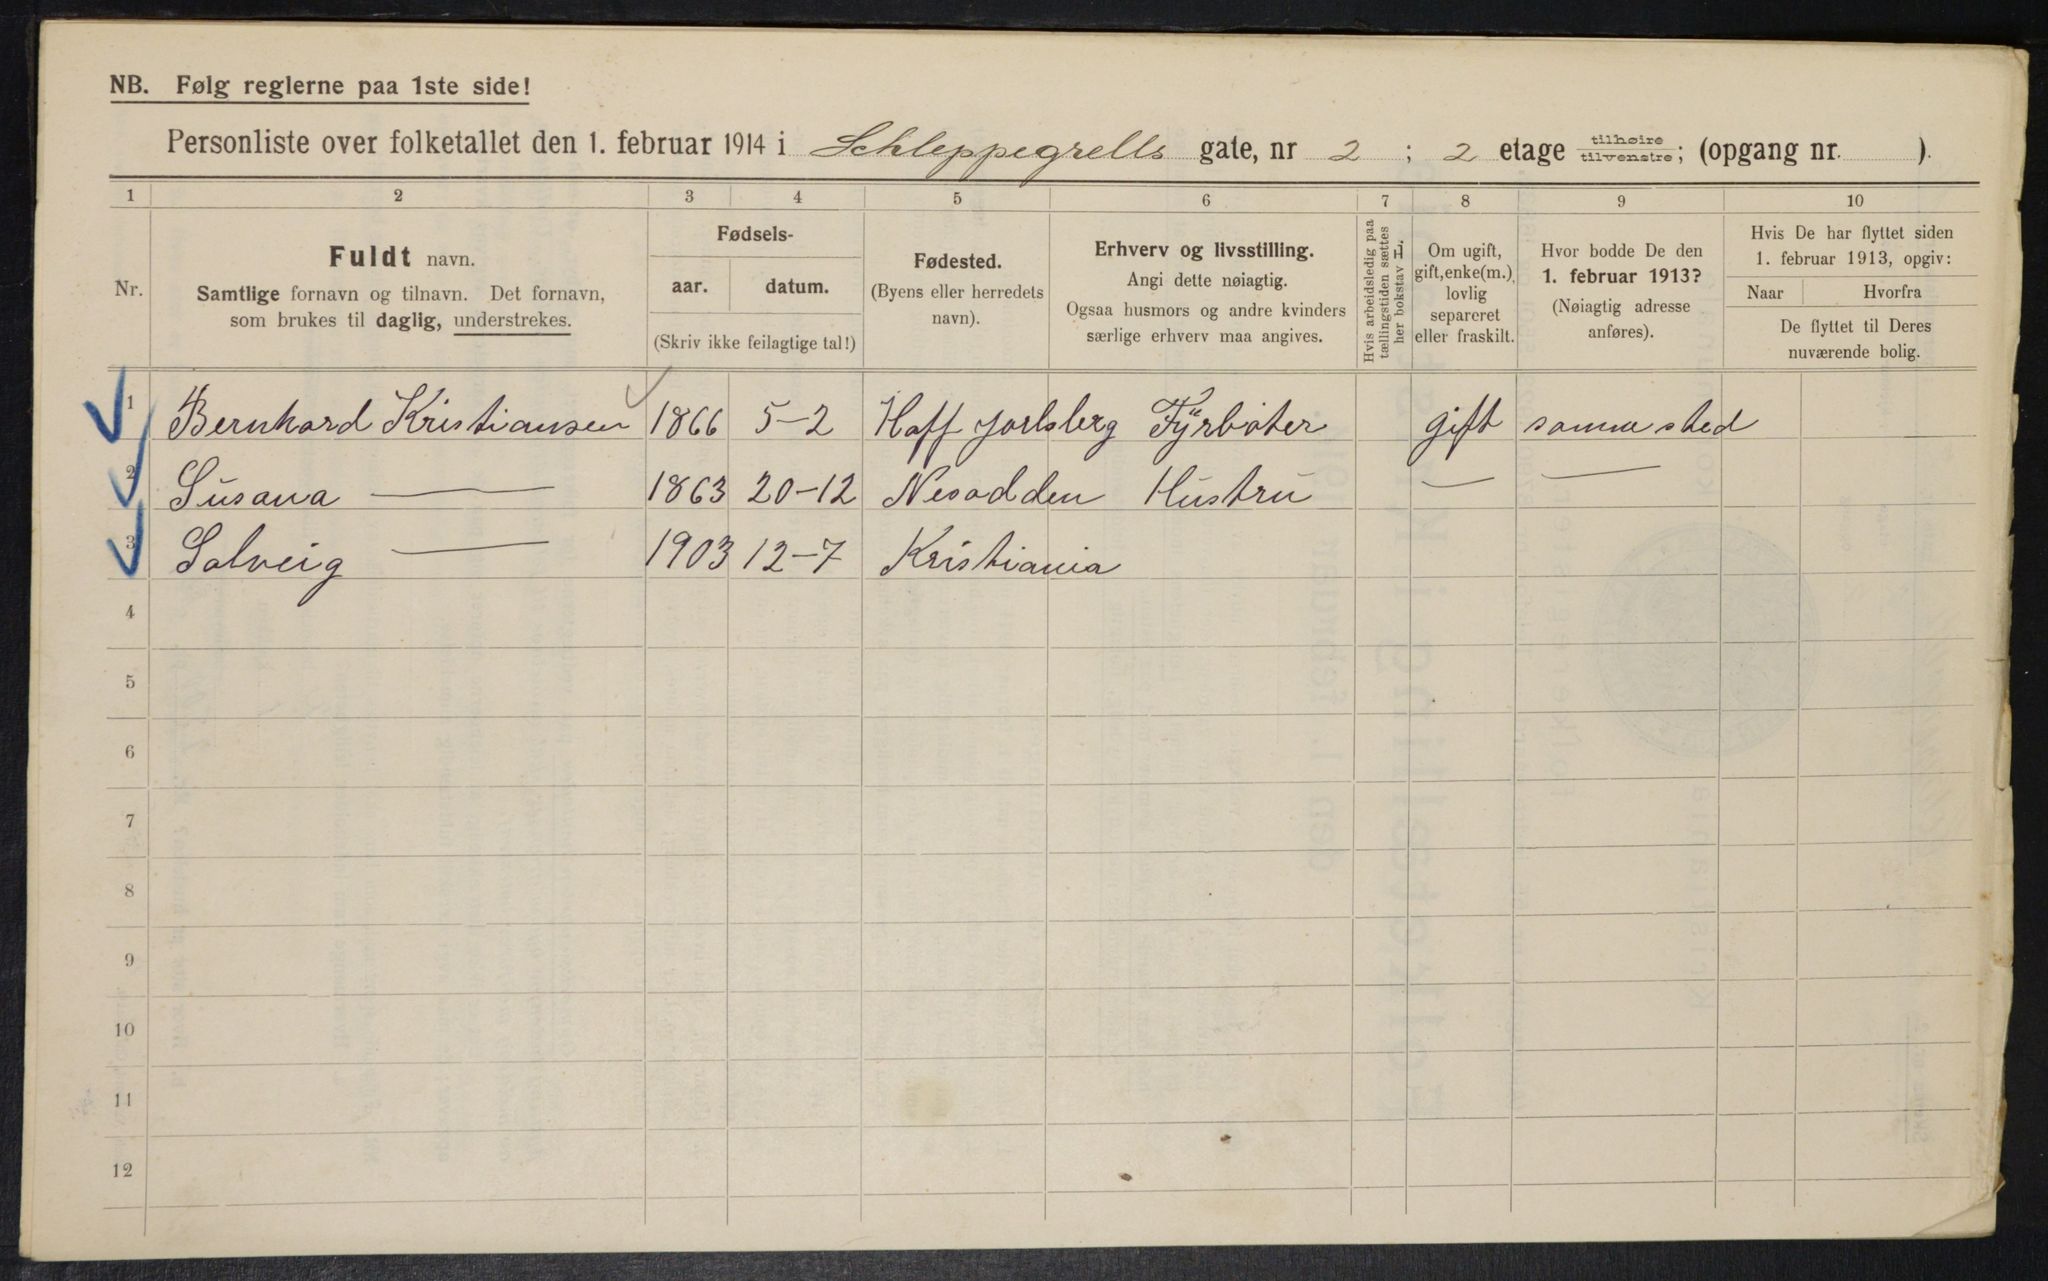 NB. Følg reglerne paa 1ste side!
Personliste over folketallet den 1. februar 1914 i Schleppegrells gate, nr 2 ; 2 etage tilhøire tilvenstre; (opgang nr. ).
1 2 3 4 5 6 7 8 9 10
Nr.
Fuldt navn.
Samtlige fornavn og tilnavn. Det fornavn,
som brukes til daglig, understrekes.
Fødsels-
aar. datum.
(Skriv ikke feilagtige tal!)
Fødested.
(Byens eller herredets
navn).
Erhverv og livsstilling.
Angi dette nøiagtig.
Ogsaa husmors og andre kvinders
særlige erhverv maa angives.
Hvis arbeidsledig paa
tællingstiden sættes
her bokstav L.
Om ugift,
gift, enke(m.),
lovlig
separeret
eller fraskilt.
Hvor bodde De den
1. februar 1913?
(Nøiagtig adresse
anføres).
Hvis De har flyttet siden
1. februar 1913, opgiv:
Naar Hvorfra
De flyttet til Deres
nuværende bolig.
1 Bernhard Kristiansen 1866 5-2 Hoff Jarlsberg Fyrbøter gift samme sted
2 Susana — 1863 20-12 Nesodden Hustru — —
3 Solveig — 1903 12-7 Kristiania
4
5
6
7
8
9
10
11
12